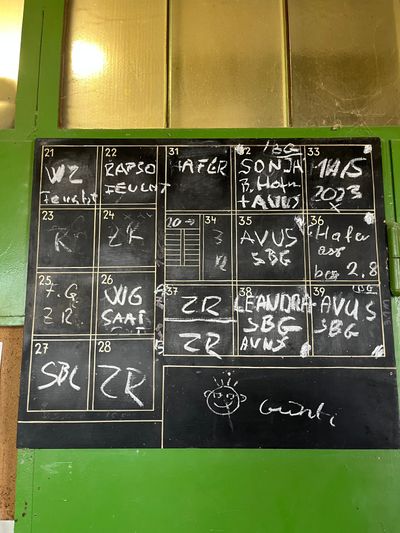 21
WZ
feucht
22
RAPSO
FEUCHT
31
HAFER
32
SBG
SONJA
+AVUS
33
MAIS
2023
23
R
24
ZR
20→
34
3
35
AVUS
SBG
36
Hafer
ass
bes 2.8
25
Z.R.
26
WG
SAAT
37
ZR
ZR
38
LEANDRA
SBG
AVUS
39
AVUS
SBG
27
SBG
28
ZR